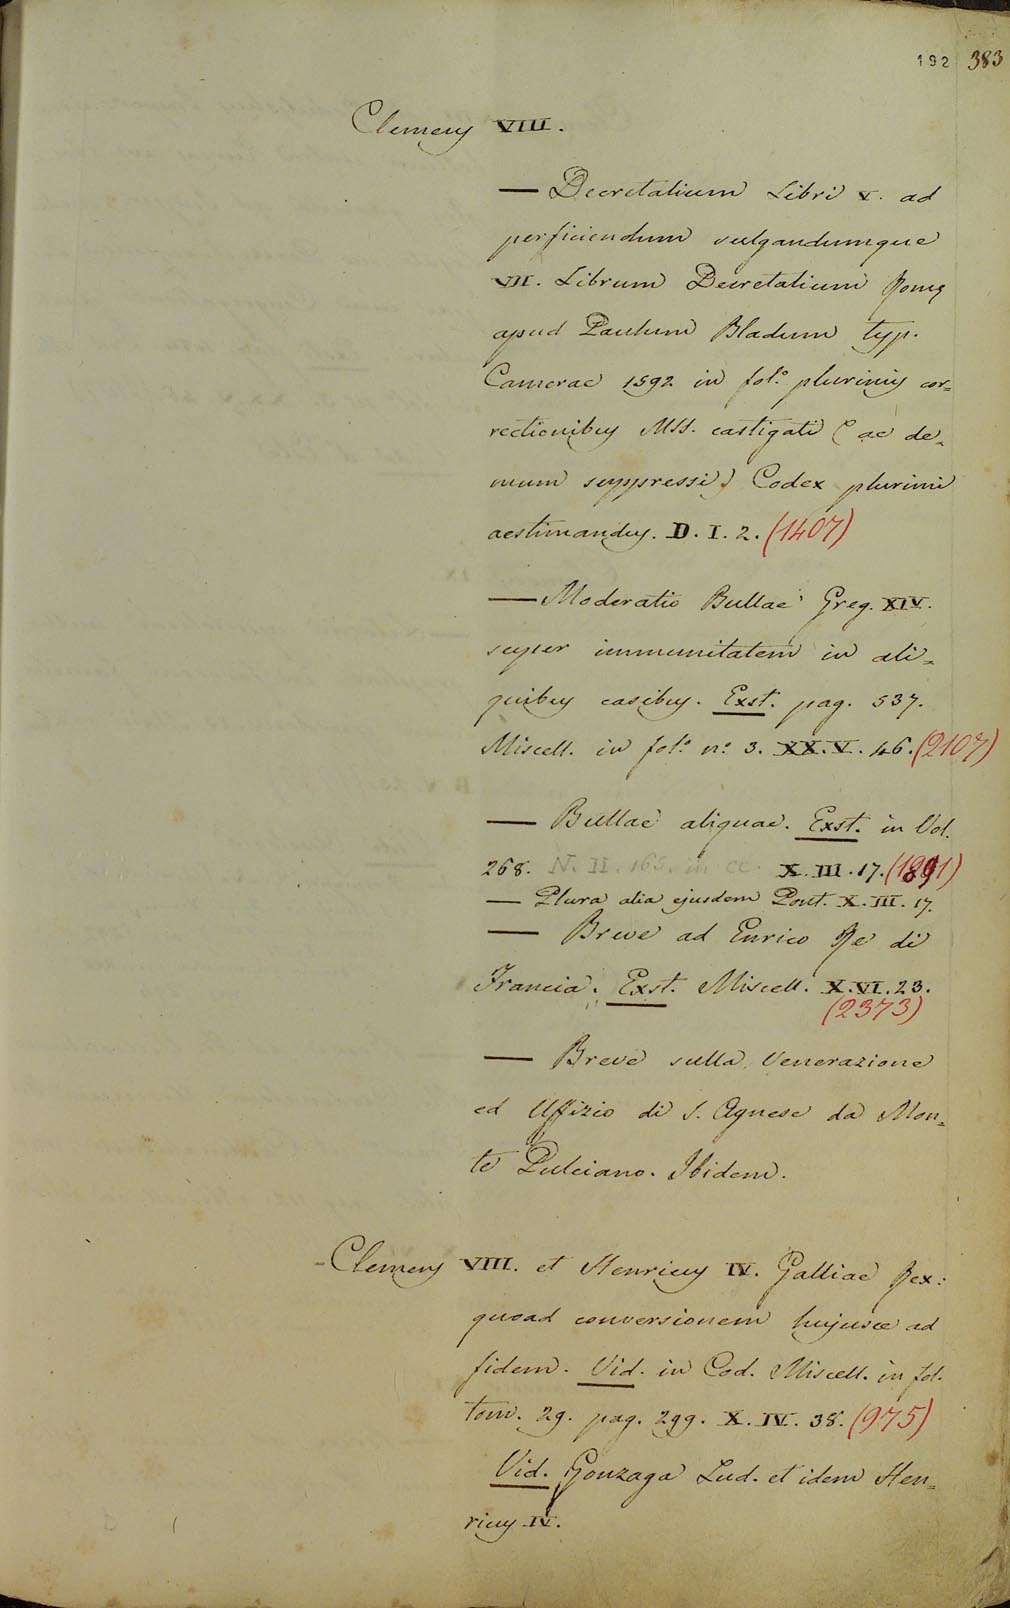 192 383
Clemens VIII.
— Decretalium Libri V. ad
perficiendum vulgandumque
VII. Librum Decretalium Romę
apud Paulum Bladum typ.
Camerae 1592 in fol.º plurimis cor=
rectionibus MSS. castigati (ac de=
mum suppressi) Codex plurimi
aestimandus. D. I. 2. (1407)
— Moderatio Bullae Greg. XIV.
super immunitatem in ali=
quibus casibus. Exst. pag. 537.
Miscell. in fol.º n.º 3. XX. V. 46. (2107)
— Bullae aliquae. Exst. in Vol.
268. N. II. 165. in cc. X. III. 17. (1891)
— Plura alia ejusdem Pont. X. III. 17.
— Breve ad Enrico Re di
Francia. Exst. Miscell. X. VI. 23.
(2373)
— Breve sulla Venerazione
ed Uffizio di S. Agnese da Mon=
te Pulciano. Ibidem.
- Clemens VIII. et Henricus IV. Galliae Rex:
quoad conversionem hujusce ad
fidem. Vid. in Cod. Miscell. in fol.
tom. 29. pag. 299. X. IV. 38. (975)
Vid. Gonzaga Lud. et idem Hen=
ricus IV.